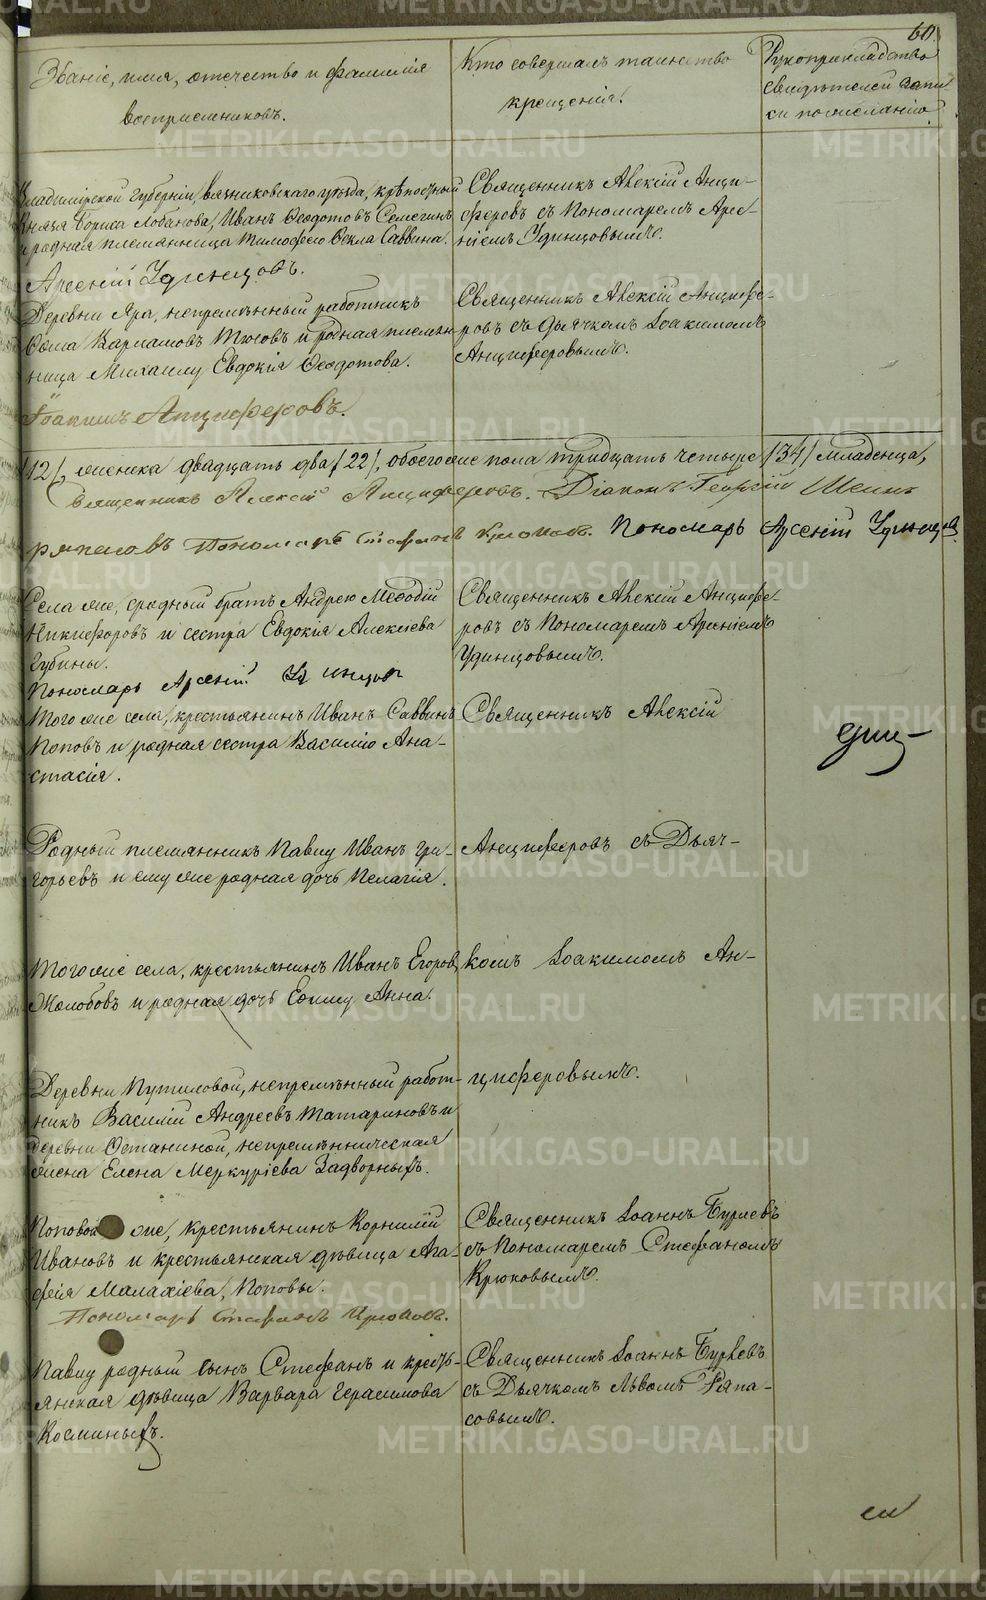 60.
Званіе, имя, отечество и фамилія
воспріемниковъ.
Кто совершалъ таинство
крещенія.
Рукоприкладство
свидѣтелей запи
си по желанію.
Владимірской Губерніи, Вязниковскаго уѣзда, крѣпостный
Князя Бориса Лобанова, Иванъ Ѳеодотовъ Семегинъ
и родная племянница Тимоѳею Ѳекла Саввина.
Арсеній Удинцовъ.
Священникъ Алексій Анци-
феровъ съ Пономаремъ Арсе-
ніемъ Удинцовымъ.
Деревни Яра, непремѣнный работникъ
Ѳома Варламовъ Тюсовъ и родная племян
ница Михаилу Евдокія Ѳеодотова.
Іоакимъ Анциферовъ.
Священникъ Алексій Анцифе-
ровъ съ Дьячкомъ Іоакимомъ
Анциферовымъ.
/12/, женска двадцать два /22/, обоего же пола тридцать четыре /34/ младенца,
Священникъ Алексій Анциферовъ. Діаконъ Георгій Шеинъ
Ряпасовъ Пономарь Стефанъ Крюковъ. Пономарь Арсеній Удинцовъ.
Села же, сродный братъ Андрею Меѳодій
Никифоровъ и сестра Евдокія Алексіева
Губины.
Пономарь Арсеній Удинцовъ
Священникъ Алексій Анцифе-
ровъ съ Пономаремъ Арсеніемъ
Удинцовымъ.
Того же села, крестьянинъ Иванъ Саввинъ
Поповъ и родная сестра Василію Ана-
стасія.
Священникъ Алексій
Родный племянникъ Павлу Иванъ Гри-
горьевъ и ему же родная дочь Пелагія.
Анциферовъ съ Дьяч-
Того же села, крестьянинъ Иванъ Егоровъ
Жолобовъ и родная дочь Ефиму Анна.
комъ Іоакимомъ Ан-
Деревни Путиловой, непремѣнный работ-
никъ Василій Андреевъ Татариновъ и
деревни Останиной, непремѣнническая
жена Елена Меркуріева Задворныхъ.
циферовымъ.
Поповой же, крестьянинъ Корнилій
Ивановъ и крестьянская дѣвица Ага-
фія Малахіева, Поповы.
Пономарь Стефанъ Крюковъ.
Священникъ Іоаннъ Бурлевъ
съ Пономаремъ Стефаномъ
Крюковымъ.
Павлу родный сынъ Стефанъ и кресть-
янская дѣвица Варвара Герасимова
Косминыхъ.
Священникъ Іоаннъ Бурлевъ
съ Дьячкомъ Львомъ Ряпа-
совымъ.
METRIKI.GASO-URAL.RU